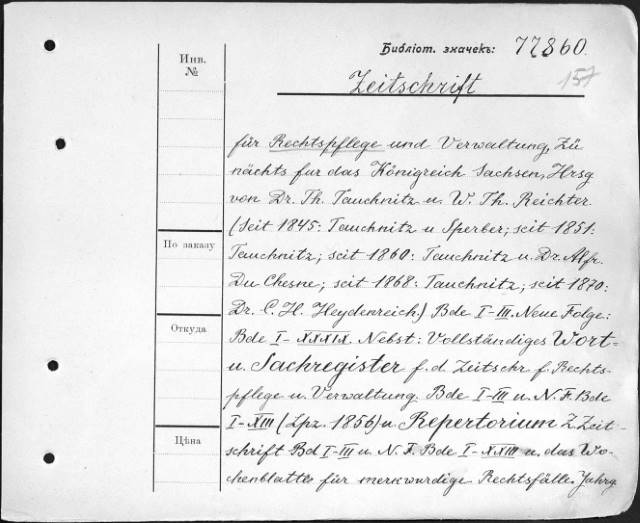 Библіот. значекъ: 77860.
157
Инв. №
Zeitschrift
für Rechtspflege und Verwaltung, Zu
nächts fur das Königreich Sachsen, Hrsg
von Dr. Th. Tauchnitz u. W. Th. Reichter.
(Seit 1845: Tauchnitz u Sperber; seit 1851:
По заказу
Tauchnitz; seit 1860: Tauchnitz u. Dr. Alfr.
Du Chesne; seit 1868: Tauchnitz; seit 1870:
Dr. C. H. Heydenreich.) Bde I-III. Neue Folge:
Откуда
Bde I-XXXIX. Nebst: Vollständiges Wort-
u. Sachregister f. d. Zeitschr. f. Rechts-
pflege u. Verwaltung. Bde I-III u. N. F. Bde
I-XIII (Lpz. 1856) u. Repertorium z. Zeit-
Цѣна
schrift Bd I-III u. N. F. Bde I-XXIII u. das Wo-
chenblatte für merkwurdige Rechtsfälle. Jahrg.